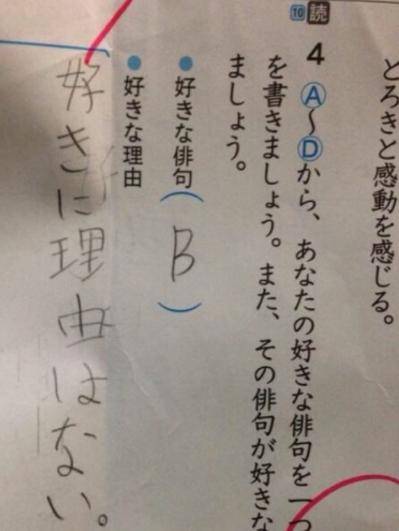 どろきと感動を感じる。
10 読
4 Ⓐ〜Ⓓから、あなたの好きな俳句を一つ
を書きましょう。また、その俳句が好きな
ましょう。
●好きな俳句(B)
●好きな理由
好きに理由はない。